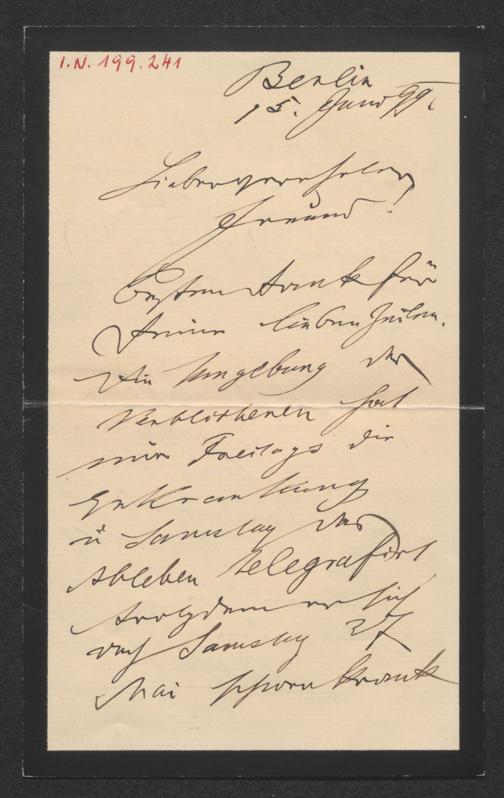 I.N. 199.241
Berlin
15. Juni 99.
Lieber verehrter
Freund!
Besten Dank für
Deine lieben Zeilen.
Die Umgebung der
Verblichenen hat
mir Freitags die
Erkrankung
u Samstag das
Ableben telegrafirt
trotzdem er sich
Samstag 27
Mai schwer krank